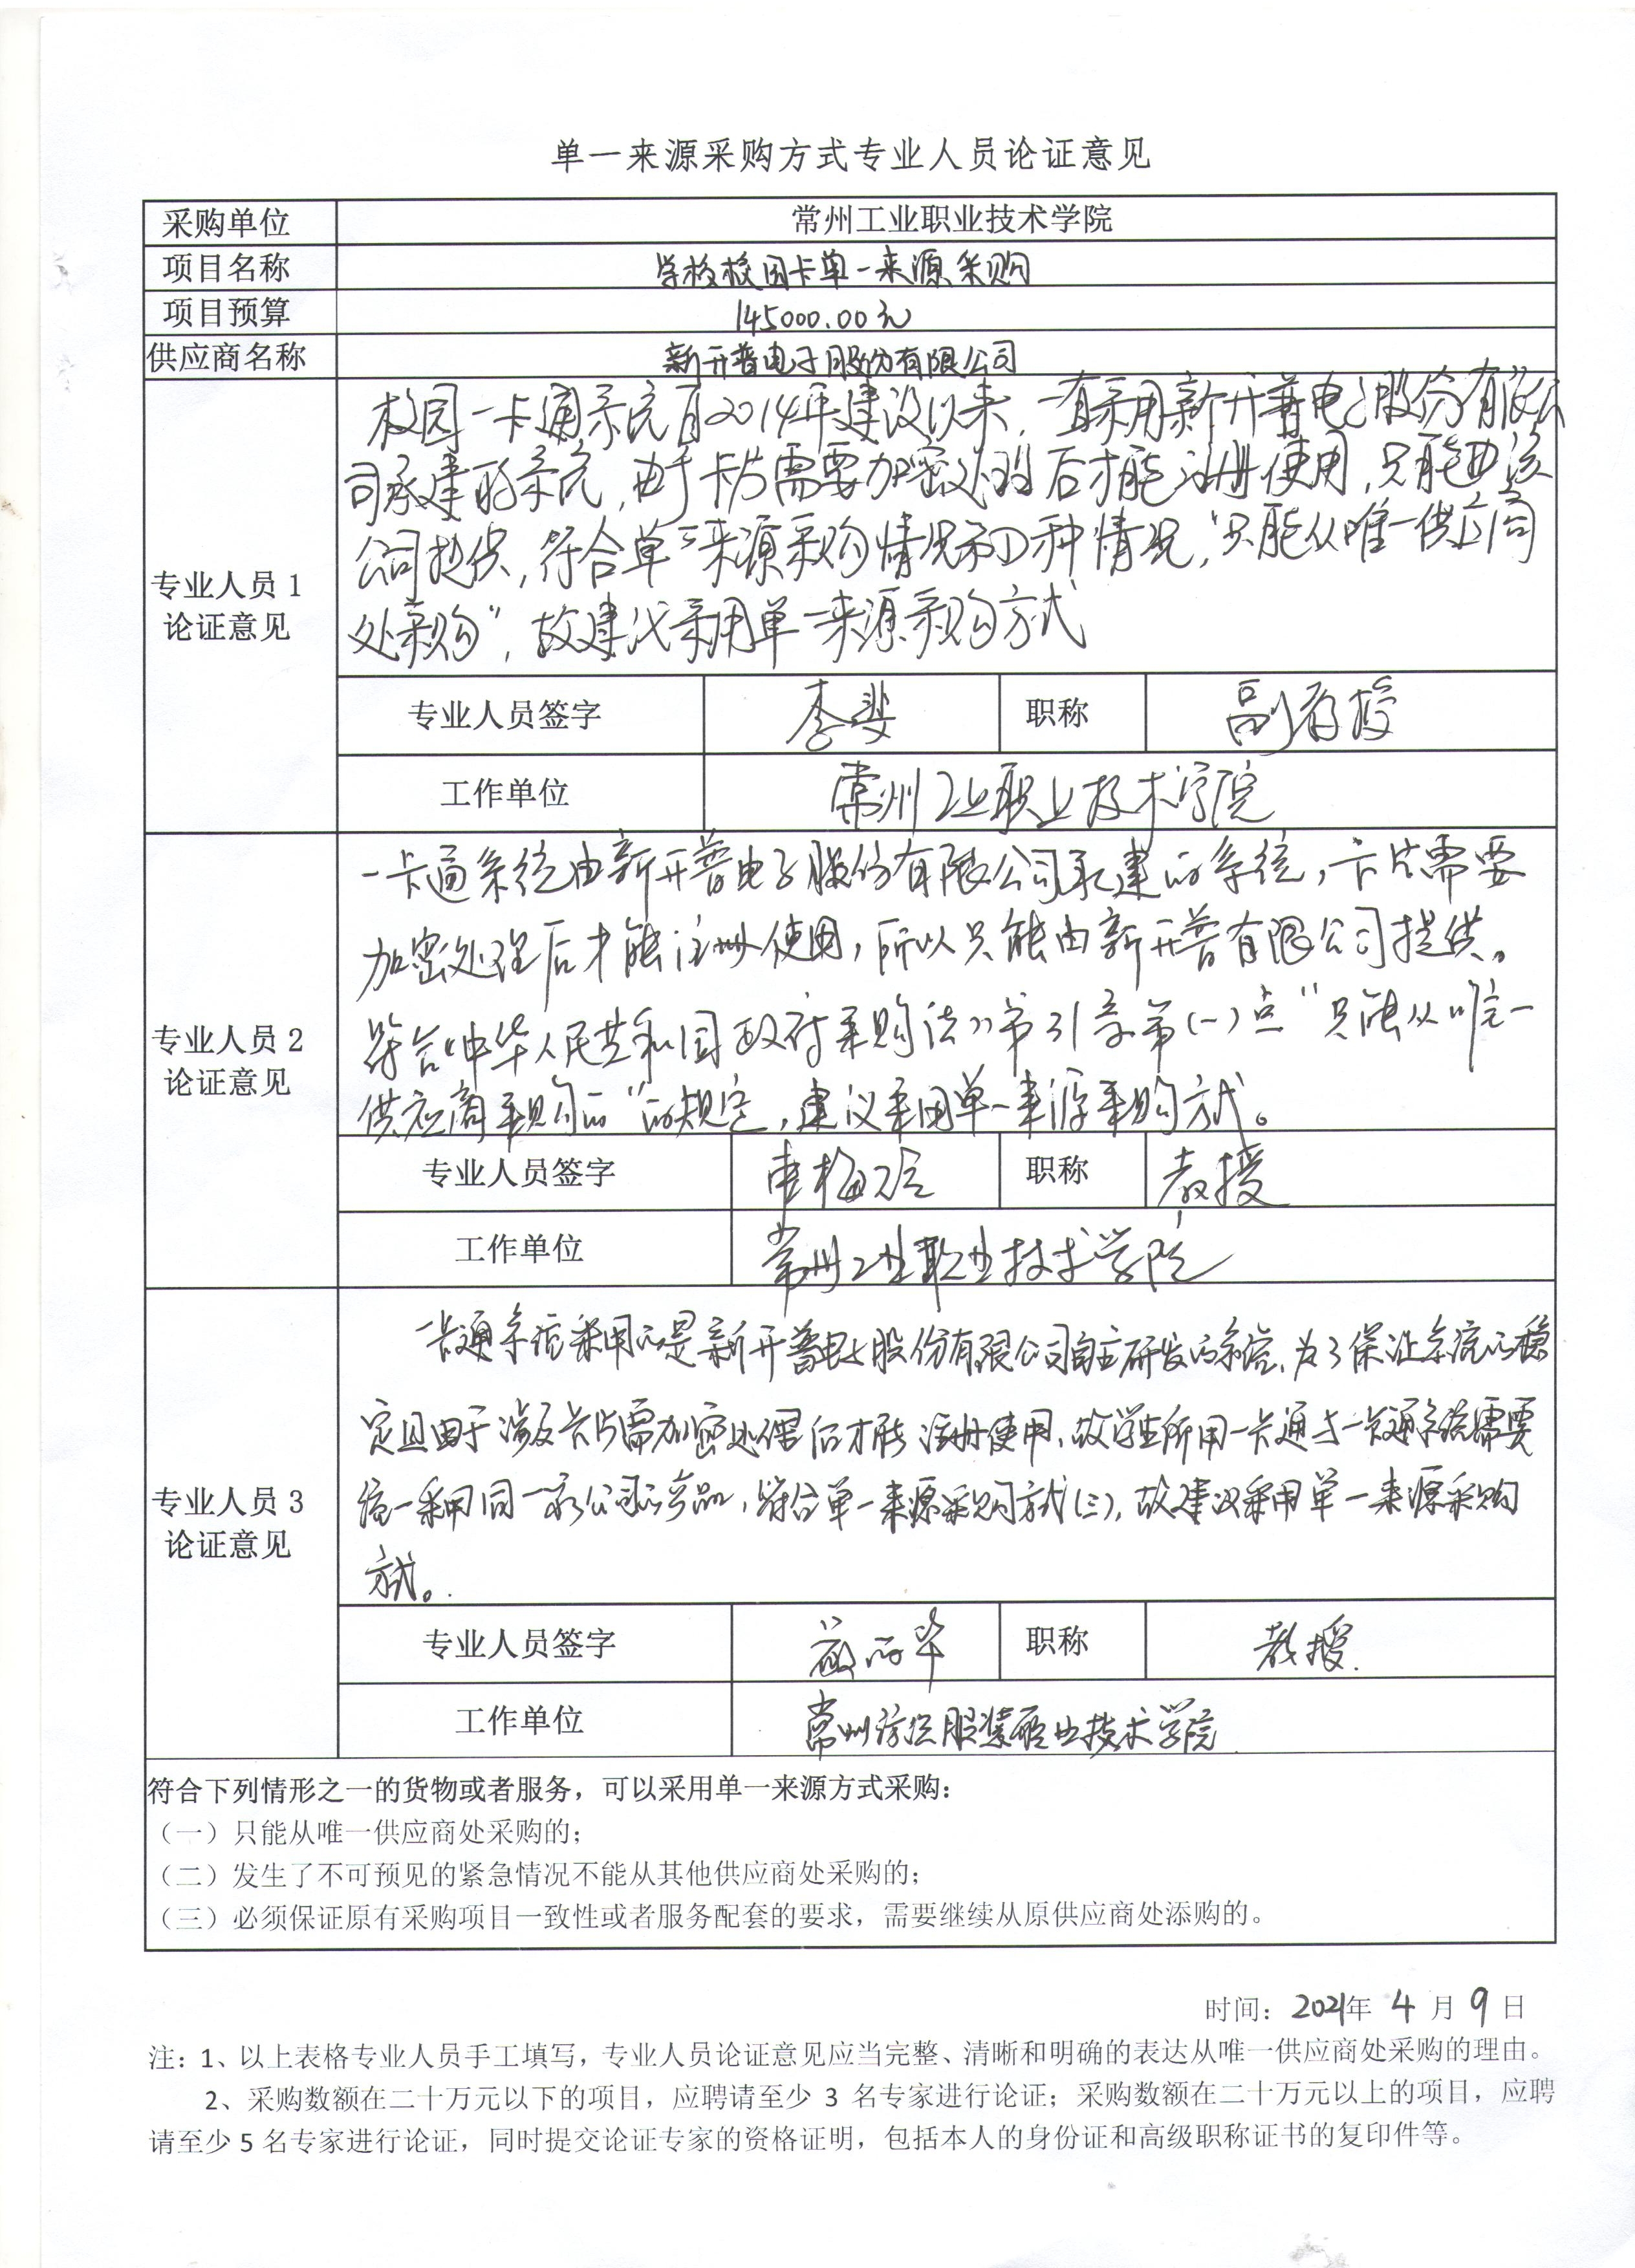 单一来源采购方式专业人员论证意见
采购单位 常州工业职业技术学院
项目名称 学校校园卡单一来源采购
项目预算 145000.00元
供应商名称 新开普电子股份有限公司
专业人员1
论证意见
校园一卡通系统自2014年建设以来,一直采用新开普电子股份有限公
司承建的系统,由于卡片需要加密处理后才能注册使用,只能由该
公司提供,符合单一来源采购情况和①种情况,“只能从唯一供应商
处采购”,故建议采用单一来源采购方式
专业人员签字 李斐 职称 副教授
工作单位 常州工业职业技术学院
专业人员2
论证意见
一卡通系统由新开普电子股份有限公司承建的系统,卡片需要
加密处理后才能注册使用,所以只能由新开普有限公司提供。
符合《中华人民共和国政府采购法》第31条第(一)点“只能从唯一
供应商采购的”的规定,建议采用单一来源采购方式。
专业人员签字 职称 教授
工作单位 常州工业职业技术学院
专业人员3
论证意见
一卡通系统采用的是新开普电子股份有限公司自主研发的系统,为了保证系统的稳
定且由于涉及卡片需加密处理后才能注册使用,故学生所用一卡通与一卡通系统需要
统一采用同一家公司的产品,符合单一来源采购方式(三),故建议采用单一来源采购
方式。
专业人员签字 职称 教授.
工作单位 常州纺织服装职业技术学院
符合下列情形之一的货物或者服务,可以采用单一来源方式采购:
(一)只能从唯一供应商处采购的;
(二)发生了不可预见的紧急情况不能从其他供应商处采购的;
(三)必须保证原有采购项目一致性或者服务配套的要求,需要继续从原供应商处添购的。
时间: 2021年 4 月 9 日
注:1、以上表格专业人员手工填写,专业人员论证意见应当完整、清晰和明确的表达从唯一供应商处采购的理由。
2、采购数额在二十万元以下的项目,应聘请至少 3 名专家进行论证;采购数额在二十万元以上的项目,应聘
请至少 5 名专家进行论证,同时提交论证专家的资格证明,包括本人的身份证和高级职称证书的复印件等。